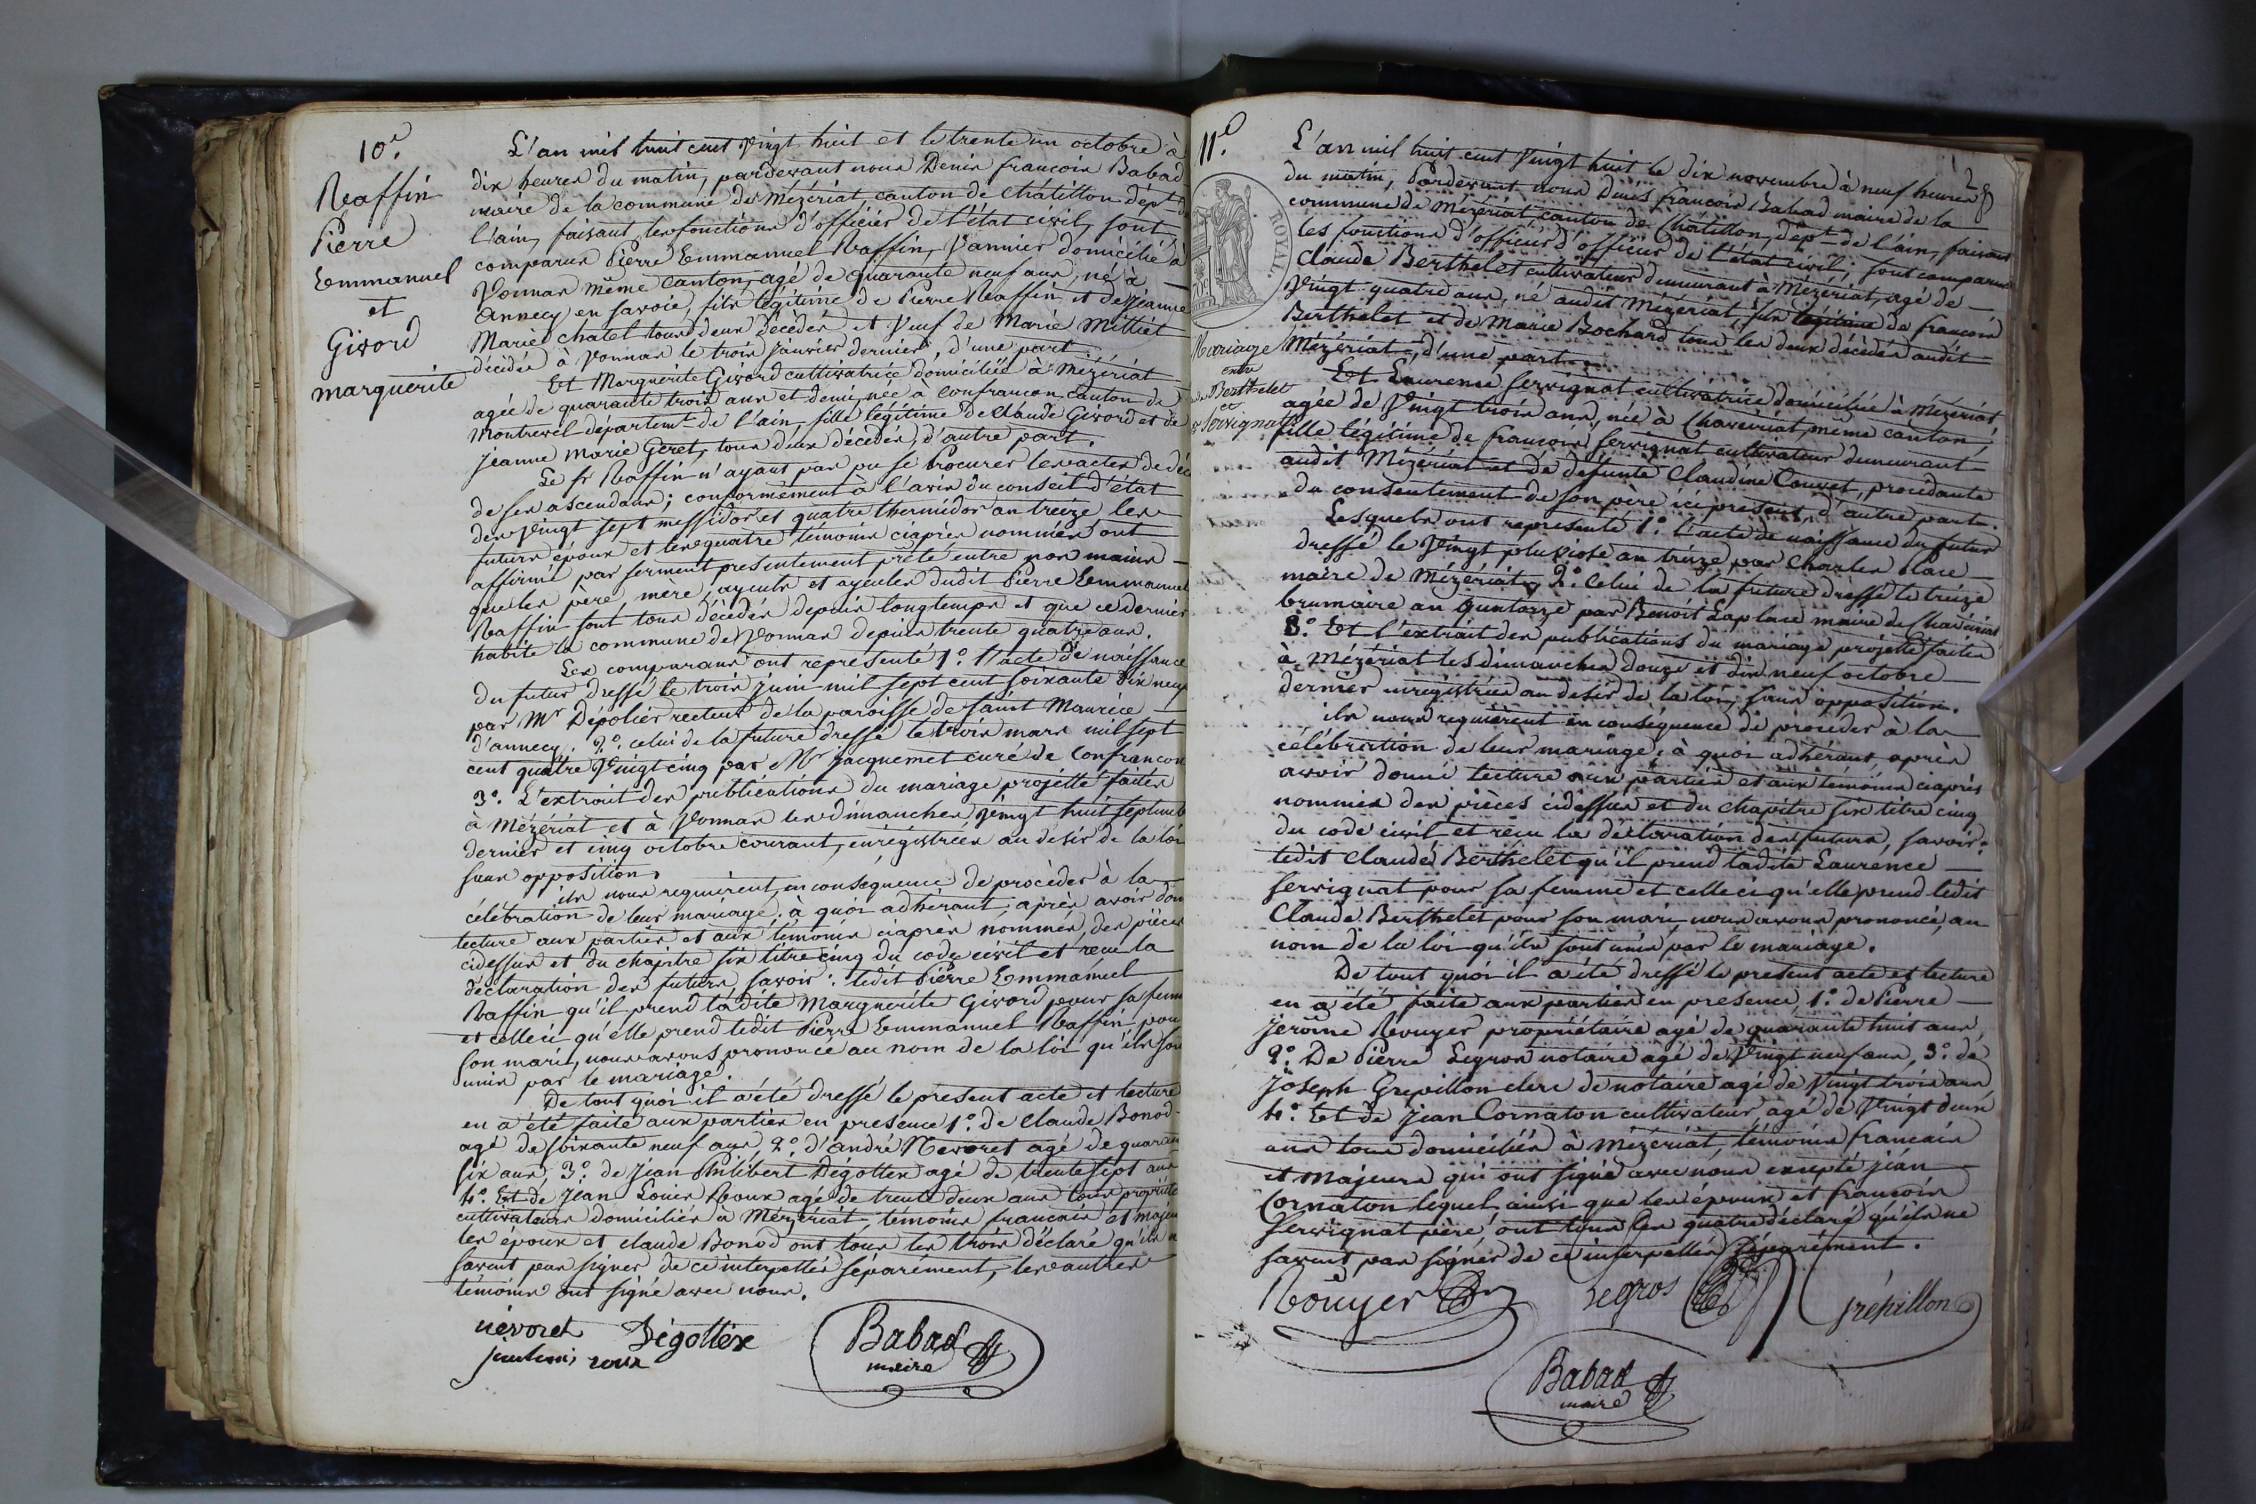 10e.
Raffin
Pierre
Emmanuel
et
Givord
marguerite
L'an mil huit cent vingt huit et le trente un octobre à
dix heures du matin, pardevant nous Denis françois Babad
maire de la commune de Mézériat, canton de Châtillon dépt. de
l'ain, faisant les fonctions d'officier de l'état civil, sont
comparus Pierre Emmanuel Raffin, vannier domicilié à
Vonnas même canton, agé de quarante neuf ans, né à
annecy en savoie, fils légitime de Pierre Raffin et de Jeanne
Marie chatel tous deux décédés et veuf de Marie Milliet
décédée à Vonnas le trois janvier dernier, d'une part.
Et Marguerite Givord cultivatrice domiciliée à Mézériat
agée de quarante trois ans et demi, née à Confrançon canton de
Montrevel departemt. de l'ain, fille légitime de Claude Givord et de
Jeanne Marie Geret, tous deux décédés, d'autre part.
Le sr Raffin n'ayant pas pu se Procurer les actes de déc
de ses ascendans; conformément à l'avis du conseil d'état
des vingt sept messidor et quatre thermidor an treize les
futurs époux et les quatre témoins ciaprès nommés ont
affirmé par serment presentement prêté entre nos mains
que les père, mère, ayeuls et ayeules dudit Pierre Emmanuel
Raffin sont tous décédés depuis longtemps et que ce dernier
habite la commune de Vonnas depuis trente quatre ans.
Les comparans ont représenté 1º. l'acte de naissance
du futur dressé le trois juin mil sept cent soixante dix neuf
par Mr Dépolier recteur de la paroisse de saint Maurice
d'annecy. 2º. celui de la future dressé le trois mars mil sept
cent quatre vingt cinq par Mr jacquemet curé de Confrançon
3º. L'extrait des publications du mariage projetté faites
à Mézériat et à Vonnas les dimanches vingt huit septemb
dernier et cinq octobre courant, enrégistrées au desir de la loi
sans opposition.
ils nous requièrent en conséquence de procèder à la
célébration de leur mariage. à quoi adhérant, après avoir don
lecture aux parties et aux témoins ciaprès nommés, des pièces
cidessus et du chapitre six titre cinq du code civil et reçu la
déclaration des futurs, savoir: ledit Pierre Emmanuel
Raffin qu'il prend ladite Marguerite Givord pour sa femm
et celleci qu'elle prend ledit Pierre Emmanuel Raffin pou
son mari, nous avons prononcé au nom de la loi qu'ils son
unis par le mariage.
De tout quoi il a été dressé le présent acte et lecture
en a été faite aux parties en presence 1º. de Claude Bonod
agé de soixante neuf ans, 2º. d'andré Nevoret agé de quaran
six ans, 3º. de Jean Philibert Dégottex agé de trente sept ans
4º. Et de Jean Louis Roux agé de trente deux ans tous propriéte
cultivateurs domiciliés à Mézériat, témoins francais et majeu
les époux et claude Bonod ont tous les trois déclaré qu'ils n
savent pas signer de ce interpellés séparement, les autres
témoins ont signé avec nous.
nevoret Dégottex
roux
Babad
maire
11e.
ROYAL.
Mariage
entre
Berthelet
et
Servignat
L'an mil huit cent vingt huit le dix novembre à neuf heures
du matin, Pardevant nous Denis françois Babad maire de la
commune de Mézériat canton de Châtillon, dépt. de l'ain, faisant
les fonctions d'officier d'officier de l'état civil; sont comparus
Claude Berthelet cultivateur demeurant à Mézériat, agé de
Vingt quatre ans, né audit Mézériat, fils légitime de françois
Berthelet et de Marie Bochard tous les deux décédés audit
Mézériat, d'une part.
Et Laurence Servignat cultivatrice domiciliée à Mézériat
agée de vingt trois ans, née à Chaveiriat, même canton,
fille légitime de françois Servignat cultivateur demeurant
audit Mézériat et de défunte Claudine Couvet, procédante
du consentement de son père ici présent, d'autre part.
Lesquels ont représenté 1º. l'acte de naissance du futur
dressé le vingt pluviose an treize par Charles Place
maire de Mézériat, 2º. celui de la future dressé le treize
brumaire an quatorze par Benoit Laplace maire de Chaveiriat
3º. Et l'extrait des publications du mariage projetté faites
à Mézériat les dimanches douze et dix neuf octobre
dernier enregistrées au desir de la loi, sans opposition.
ils nous requièrent en conséquence de procéder à la
célébration de leur mariage, à quoi adhérant, après
avoir donné lecture aux parties et aux témoins ciaprès
nommés des pièces cidessus et du chapitre six titre cinq
du code civil et reçu la déclaration des futurs, savoir:
ledit Claude Berthelet qu'il prend ladite Laurence
Servignat pour sa femme et celle ci qu'elle prend ledit
Claude Berthelet pour son mari, nous avons prononcé, au
nom de la loi qu'ils sont unis par le mariage.
De tout quoi il a été dressé le present acte et lecture
en a été faite aux parties en presence 1º. de Pierre
Jerôme Rouyer propriétaire agé de quarante huit ans
2º. De Pierre Legros notaire agé de vingt neuf ans, 3º. de
Joseph Grepillon clerc de notaire agé de vingt trois ans
4º. Et de Jean Cornaton cultivateur agé de vingt deux
ans tous domiciliés à Mézériat, témoins francais
et majeurs qui ont signé avec nous excepté jean
Cornaton lequel ainsi que les époux et françois
Servignat père, ont tous les quatre déclaré qu'ils ne
savent pas signer de ce interpellés séparément.
Rouyer Legros Grépillon
Babad
maire